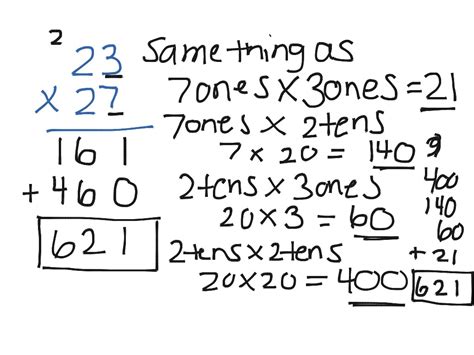 2
23
x 27
161
+ 460
621
Same thing as
7 ones x 3 ones = 21
7 ones x 2 tens
7 x 20 = 140
2 tens x 3 ones
20 x 3 = 60
2 tens x 2 tens
20 x 20 = 400
400
140
60
+ 21
621